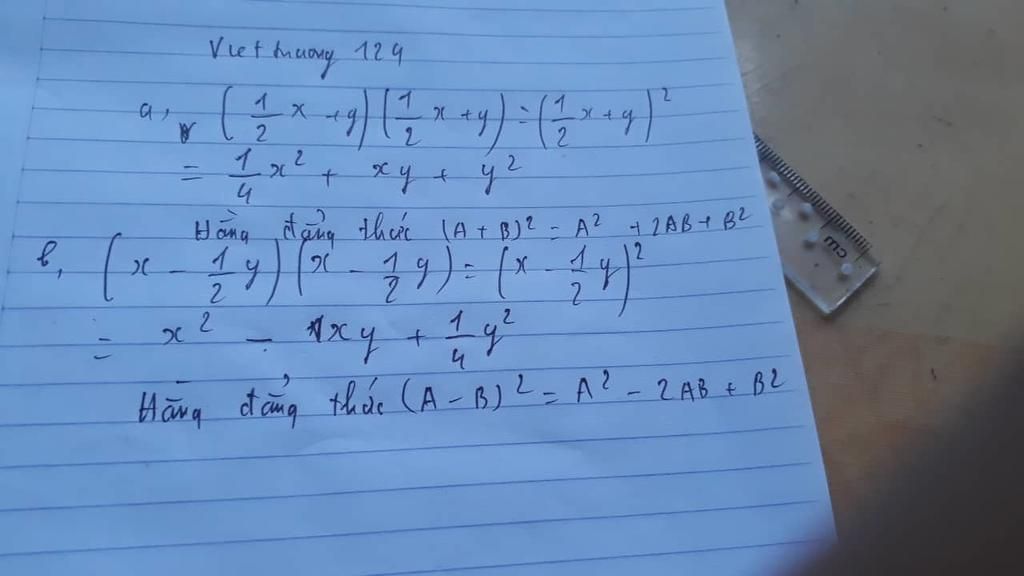 Viethuong 124
a, (1/2 x + y) (1/2 x + y) = (1/2 x + y)²
= 1/4 x² + xy + y²
Hằng đẳng thức (A + B)² = A² + 2AB + B²
b, (x - 1/2 y) (x - 1/2 y) = (x - 1/2 y)²
= x² - xy + 1/4 y²
Hằng đẳng thức (A - B)² = A² - 2AB + B²
cm